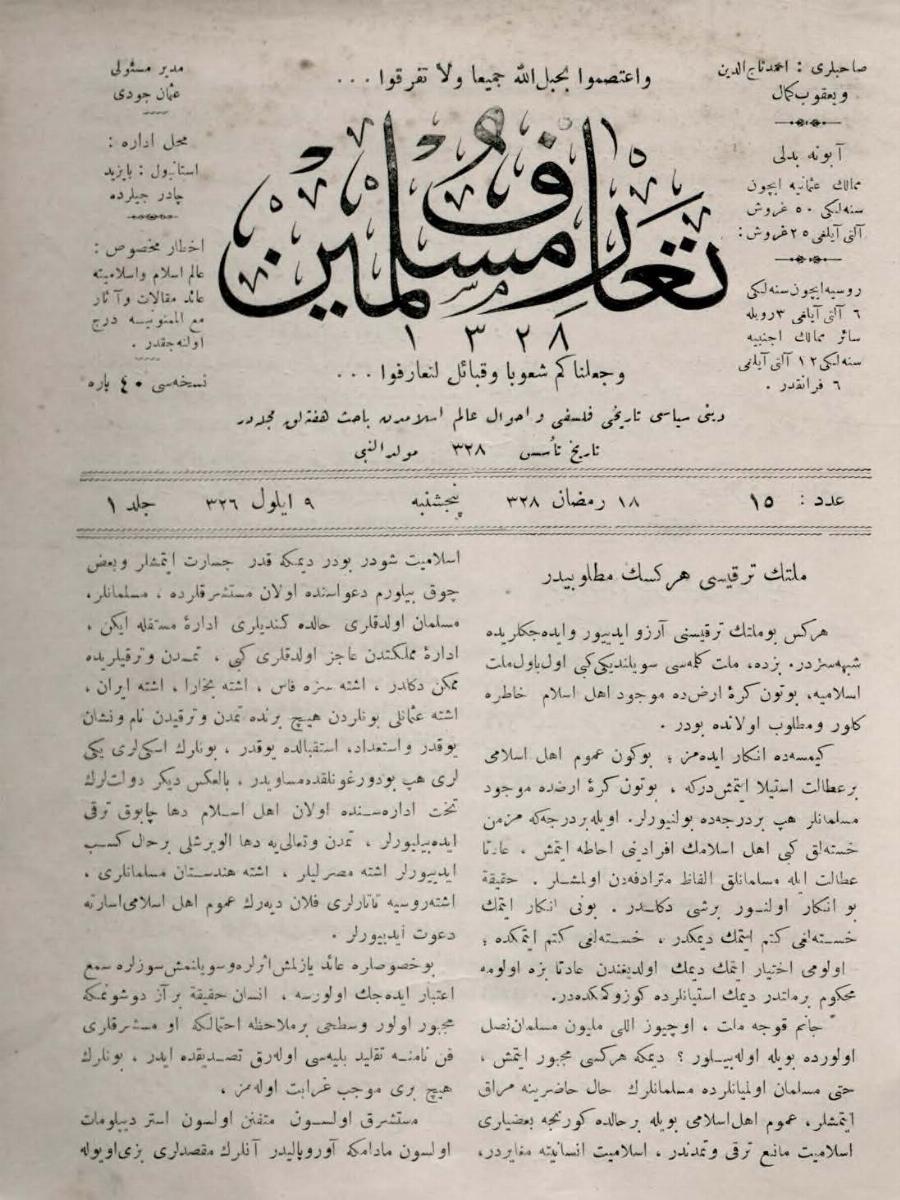 واعتصموا بحبل الله جميعا ولا تفرقوا . . .
صاحبلرى : احمد تاج الدين
و يعقوب كمال
آبونه بدلى
ممالك عثمانيه ايچون
سنه لكى ٥٠ غروش
آلتى آيلغى ٢٥ غروش :
روسيه ايچون سنه لكى
٦ آلتى آيلغى ٣ روبله
سائر ممالك اجنبيه
سنه لكى ١٢ آلتى آيلغى
٦ فرانقدر .
مدير مسئولى
عثمان جودى
محل اداره :
استانبول : بايزيد
چادرجيلرده
اخطار مخصوص :
عالم اسلام و اسلاميته
عائد مقالات و آثار
مع الممنونيسه درج
اولنه جقدر .
نسخه سى ٤٠ پاره
تعارف مسلمين
١٣٢٨
وجعلناكم شعوبا وقبائل لتعارفوا . . .
دينى سياسى تاريخى فلسفى و احوال عالم اسلامدن باحث هفته لق مجله در
تاريخ تأسس ٣٢٨ مولد النبى
عدد : ١٥ ١٨ رمضان ٣٢٨ پنجشنبه ٩ ايلول ٣٢٦ جلد ١
ملتك ترقيسى هر كسك مطلوبيدر
هركس بو ملتك ترقيسنى آرزو ايدييور وايده جكلريده
شبهه سزدر. بزده، ملت كله سى سويلنديكى كبى اول باول ملت
اسلاميه، بوتون كرۀ ارضده موجود اهل اسلام خاطره
كلور ومطلوب اولانده بودر .
كيمسه ده انكار ايده مز ؛ بوكون عموم اهل اسلامى
بر عطالت استيلا ايتمش دركه ، بوتون كرۀ ارضده موجود
مسلمانلر هپ بر درجه ده بولنيورلر. اويله بر درجه كه مزمن
خسته لق كبى اهل اسلامك افرادينى احاطه ايتمش ، عادتا
عطالت ايله مسلمانلق الفاظ مترادفه دن اولمشلر . حقيقة
بو انكار اولنور برشى دكلدر . بونى انكار ايتمك
خسته لغى كتم ايتمك ديمكدر ، خسته لغى كتم ايتمكده ؛
اولومى اختيار ايتمك ديمك اولديغندن عادتا بزه اولومه
محكوم بر ملتدر ديمك استيانلرده كوزوكمكده در.
جانم قوجه ملت ، اوچيوز اللى مليون مسلمان نصل
اولورده بويله اوله بيلور ؟ ديمكه هركسى مجبور ايتمش ،
حتى مسلمان اولميانلرده مسلمانلرك حال حاضرينه مراق
ايتمشلر، عموم اهل اسلامى بويله بر حالده كورنجه بعضيلرى
اسلاميت مانع ترقى وتمدندر ، اسلاميت انسانيته مغايردر،
اسلاميت شودر بودر ديمكه قدر جسارت ايتمشلر وبعض
چوق بيلورم دعواسنده اولان مستشرقلرده ، مسلمانلر،
مسلمان اولدقلرى حالده كنديلرى ادارۀ مستقله ايكن ،
ادارۀ مملكتدن عاجز اولدقلرى كبى ، تمدن وترقيلريده
ممكن دكلدر ، اشته سزه فاس ، اشته بخارا ، اشته ايران ،
اشته عثمانلى بونلردن هيچ برنده تمدن وترقيدن نام ونشان
يوقدر واستعداد، استقبالده يوقدر ، بونلرك اسكى لرى يكى
لرى هپ بودورغونلقده مساويدر ، بالعكس ديكر دولتلرك
تحت اداره سنده اولان اهل اسلام دها چابوق ترقى
ايده بيليورلر ، تمدن وتعالى يه دها الويرشلى بر حال كسب
ايدييورلر اشته مصرليلر ، اشته هندستان مسلمانلرى ،
اشته روسيه تاتارلرى فلان ديه رك عموم اهل اسلامى اسارته
دعوت ايدييورلر .
بو خصوصلره عائد يازلمش اثرلره و سويلنمش سوزلره سمع
اعتبار ايده جك اولورسه ، انسان حقيقة بر آز دوشونمكه
مجبور اولور وسطحى بر ملاحظه احتمالكه او مستشرقلرى
فن نامنه تقليد بليه سى اوله رق تصديقده ايدر ، بونلرك
هيچ برى موجب غرابت اوله مز .
مستشرق اولسون متفنن اولسون استر ديپلومات
اولسون مادامكه آوروپاليدر آنلرك مقصدلرى بزى اويوله